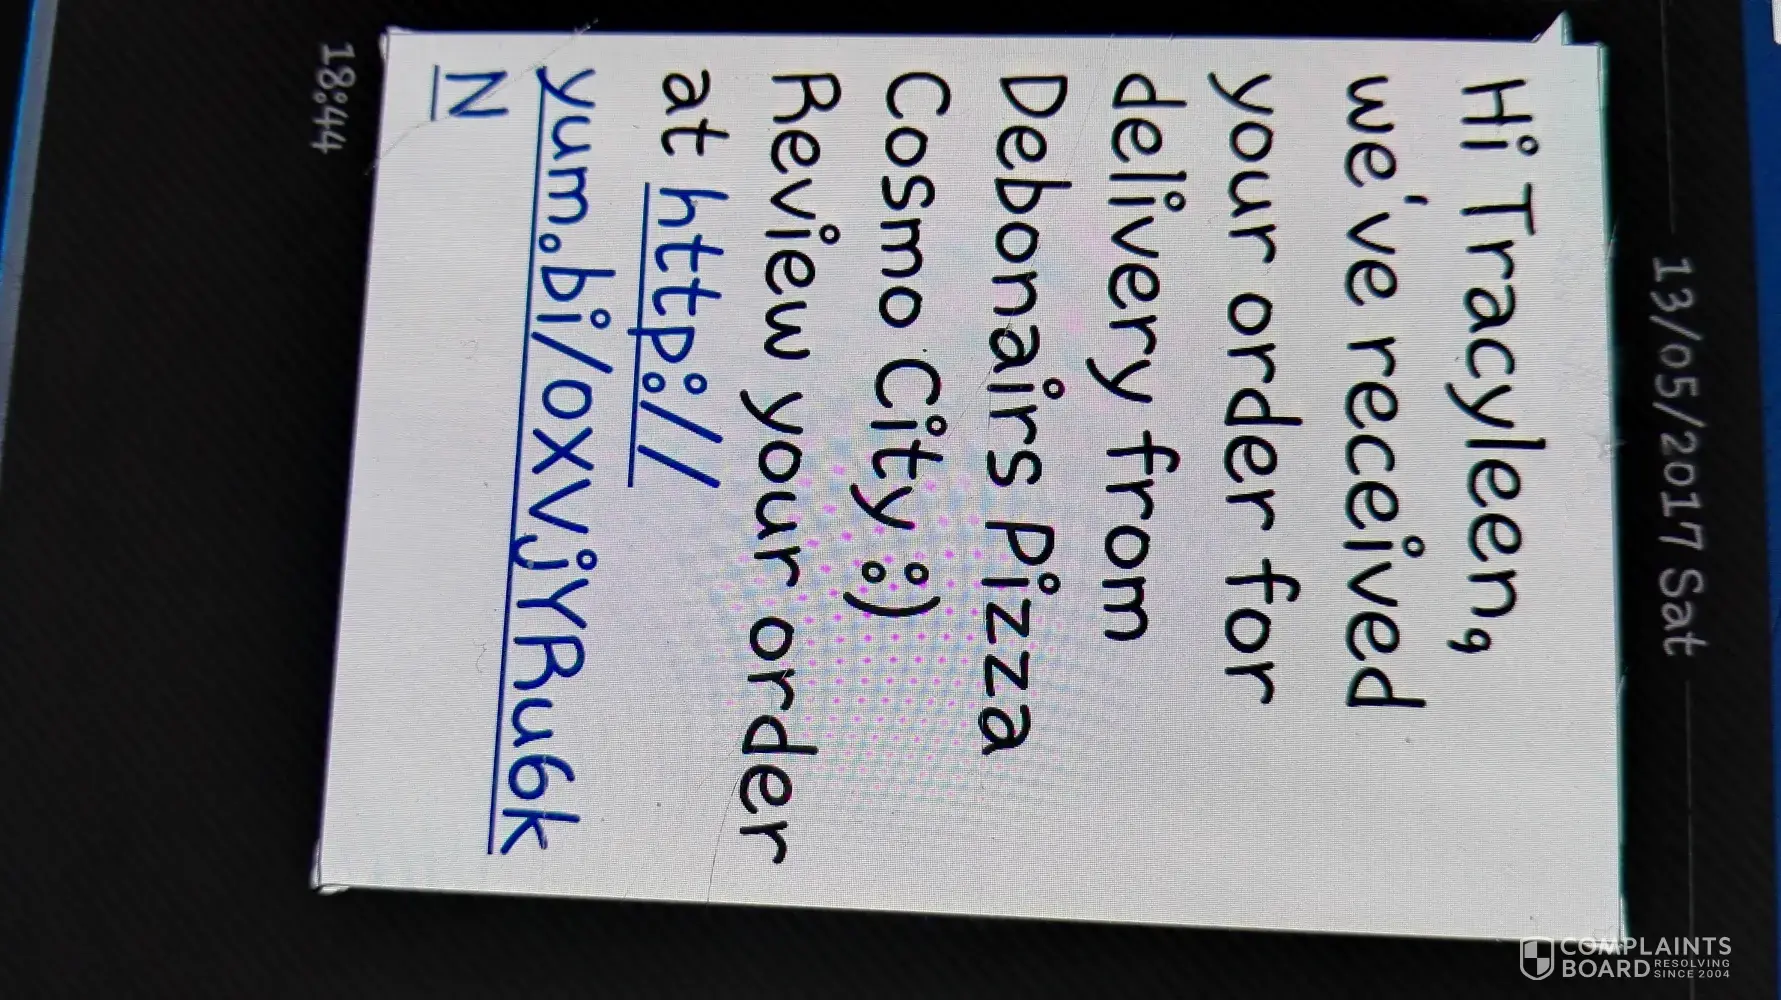 13/05/2017 Sat
Hi Tracyleen,
we've received
your order for
delivery from
Debonairs Pizza
Cosmo City :)
Review your order
at http://
yum.bi/oXVjYRu6k
N
18:44
COMPLAINTS
BOARD RESOLVING
SINCE 2004